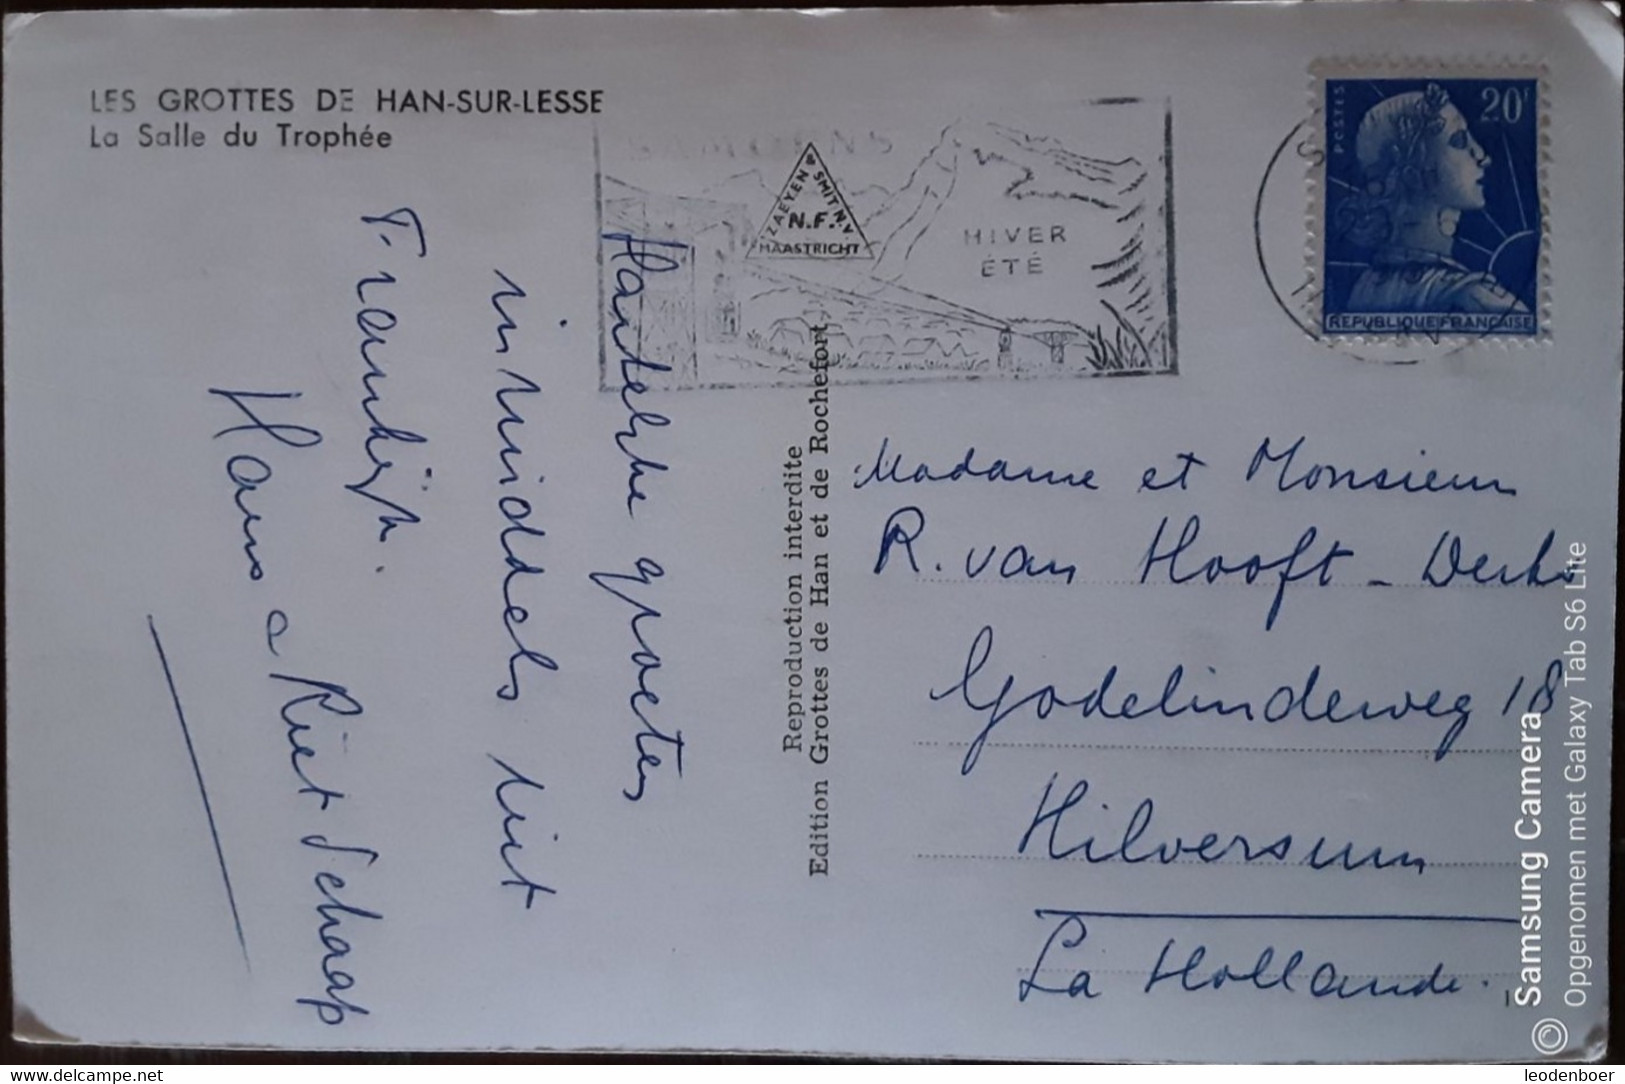 LES GROTTES DE HAN-SUR-LESSE
La Salle du Trophée
ZAEYEN & SMIT N.V.
N.F.
MAASTRICHT
HIVER
ÉTÉ
POSTES
20F
REPUBLIQUE FRANÇAISE
Hartelijke groeten
inmiddels uit
Frankrijk.
Hans & Riet Schaap
Reproduction interdite
Edition Grottes de Han et de Rochefort
Madame et Monsieur
R. van Hooft - Derks
Godelindeweg 18
Hilversum
La Hollande.
Samsung Camera
Opgenomen met Galaxy Tab S6 Lite
www.delcampe.net
leodenboer